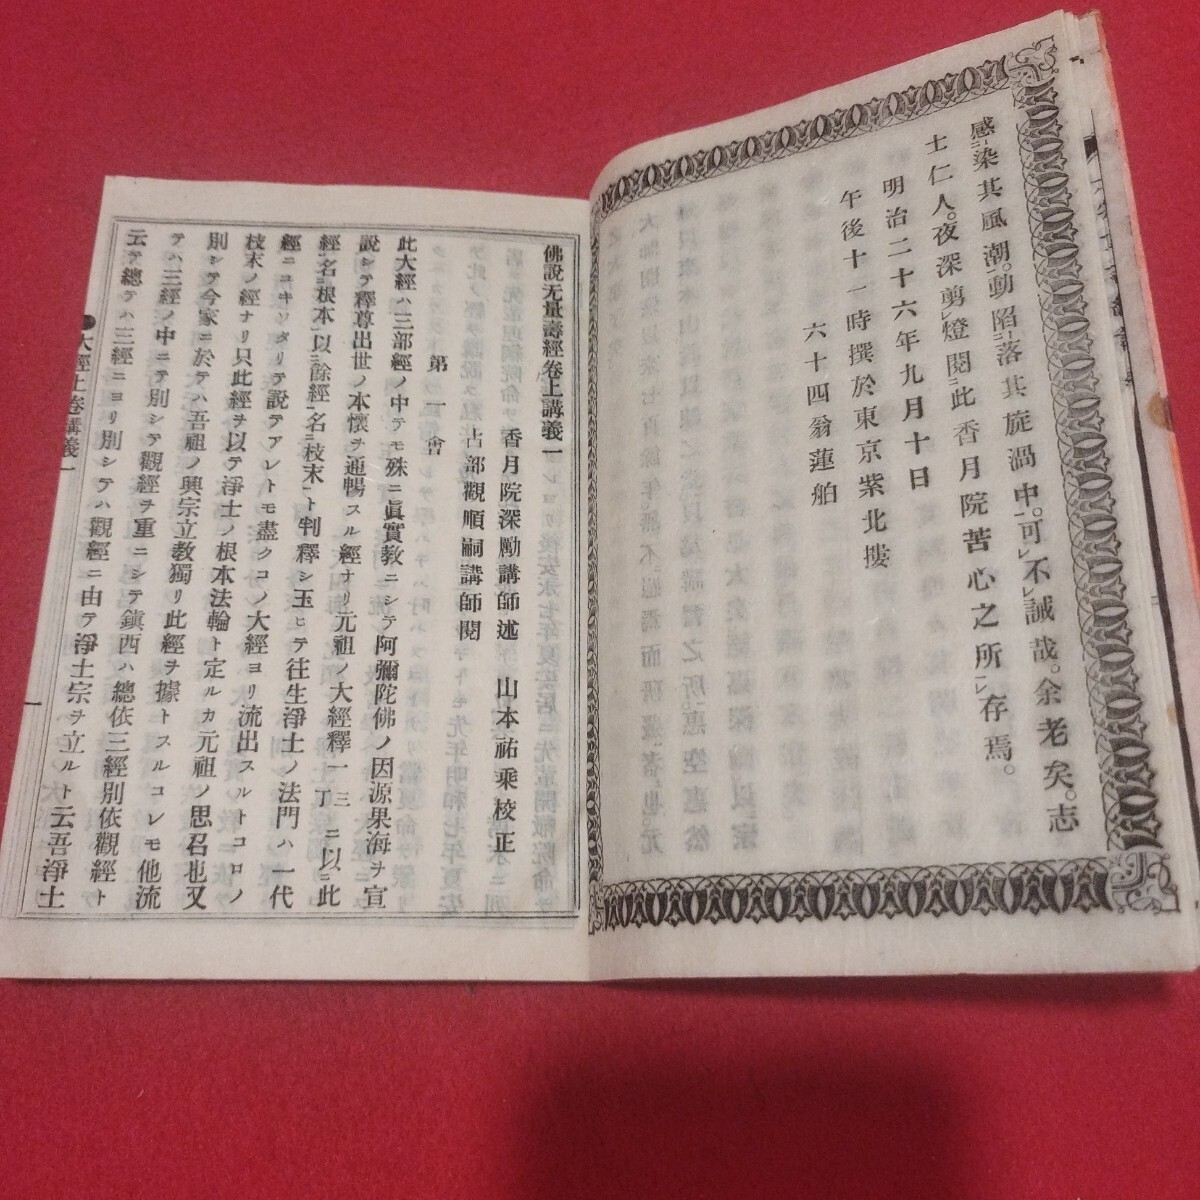 感染其風潮。動陷落其旋渦中。可不誠哉。余老矣。志
士仁人。夜深剪燈閱此香月院苦心之所存焉。
明治二十六年九月十日
午後十一時撰於東京紫北搜
六十四翁蓮舶
佛説无量壽經卷上講義一
香月院深勵講師述 山本祐乘校正
占部觀順嗣講師閱
第一會
此大經ハ三部經ノ中テモ殊ニ眞實教ニシテ阿彌陀佛ノ因源果海ヲ宣
説シテ釋尊出世ノ本懷ヲ通暢スル經ナリ元祖ノ大經釋一三丁ニ以ニ此
經名根本以ニ餘經名枝末ト判釋シ玉ヒテ往生淨土ノ法門ハ一代
經ニユキワタリテ説テアレトモ盡クコノ大經ヨリ流出スルトコロノ
枝末ノ經ナリ只此經ヲ以テ淨土ノ根本法輪ト定ルカ元祖ノ思召也又
別シテ今家ニ於テハ吾祖ノ興宗立教獨リ此經ヲ據トスルコレモ他流
テハ三經ノ中ニテ別シテ觀經ヲ重ニシテ鎭西ハ總依三經別依觀經ト
云テ總テハ三經ニヨリ別シテハ觀經ニ由テ淨土宗ヲ立ルト云吾淨土
大經上卷講義一
一